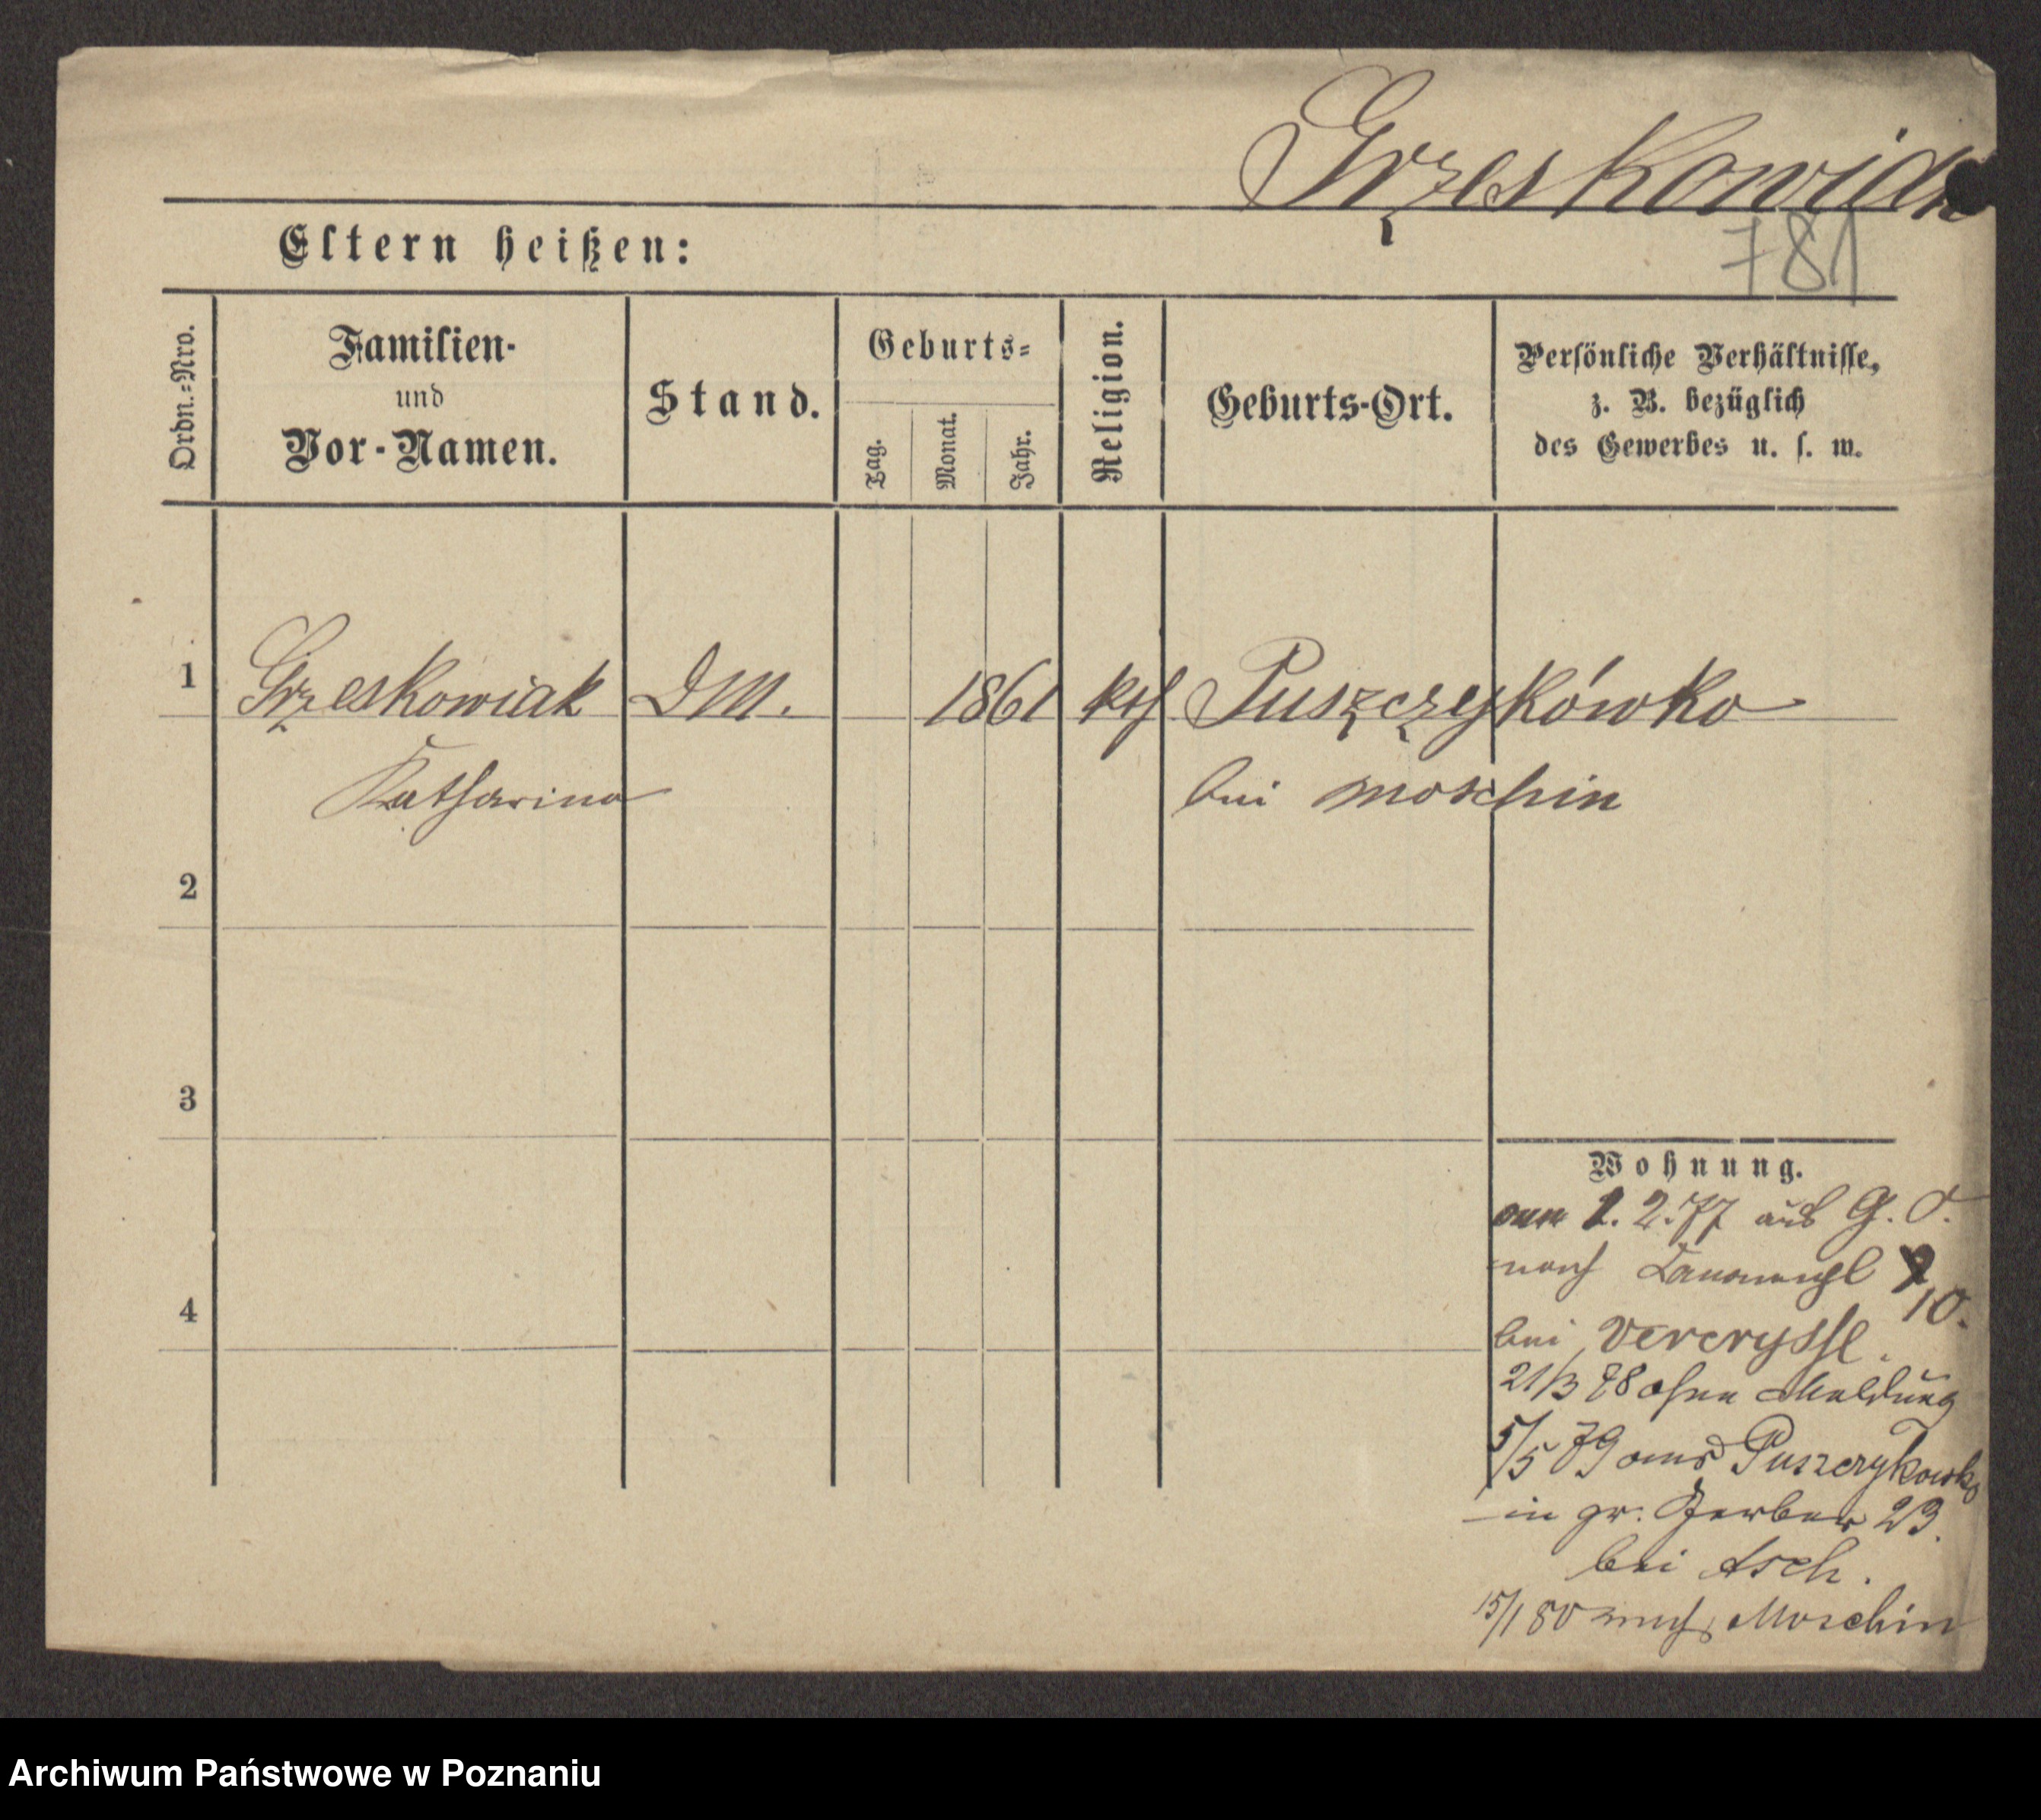 Grzeskowiak
781
Eltern heißen:
Ordn.=Nro.
Familien-
und
Vor-Namen.
Stand.
Geburts=
Tag.
Monat.
Jahr.
Religion.
Geburts-Ort.
Persönliche Verhältnisse,
z. B. bezüglich
des Gewerbes u. s. w.
1 Grzeskowiak DM. 1861 kth Puszczykówko
Katharina bei Moschin
2
3
4
Wohnung.
2.77 aus G. O.
nach
10.
bei
21/3 78 ohne Meldung
5/5 79 aus Puszczykowko
in gr. Gerber 23.
bei Asch.
15/1 80 nach Moschin
Archiwum Państwowe w Poznaniu